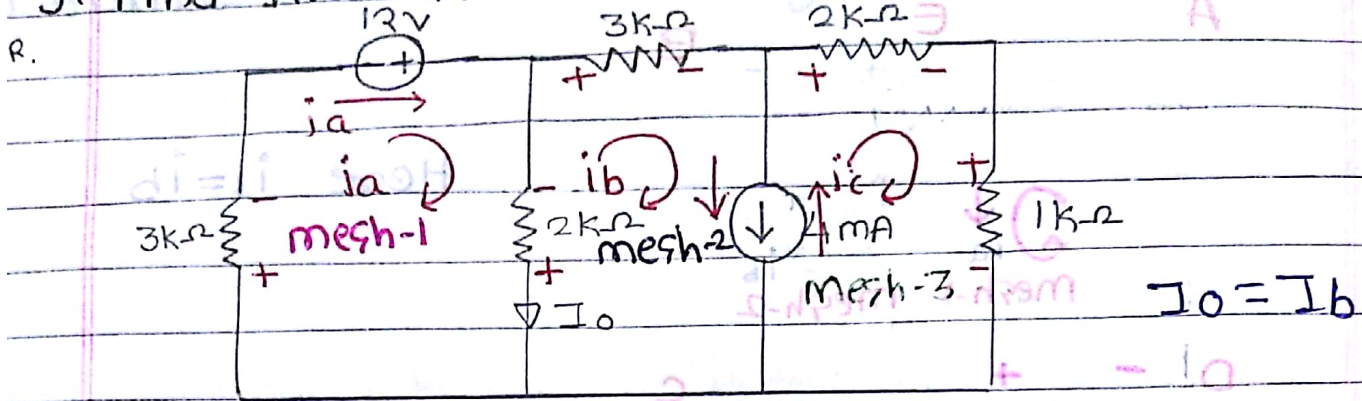 12V
3K-Ω
2K-Ω
R.
+ -
+ -
ia
ia
ib
ic
+
-
-
3K-Ω
mesh-1
2K-Ω
mesh-2
4mA
1K-Ω
+
+
mesh-3
-
Io
Io = Ib